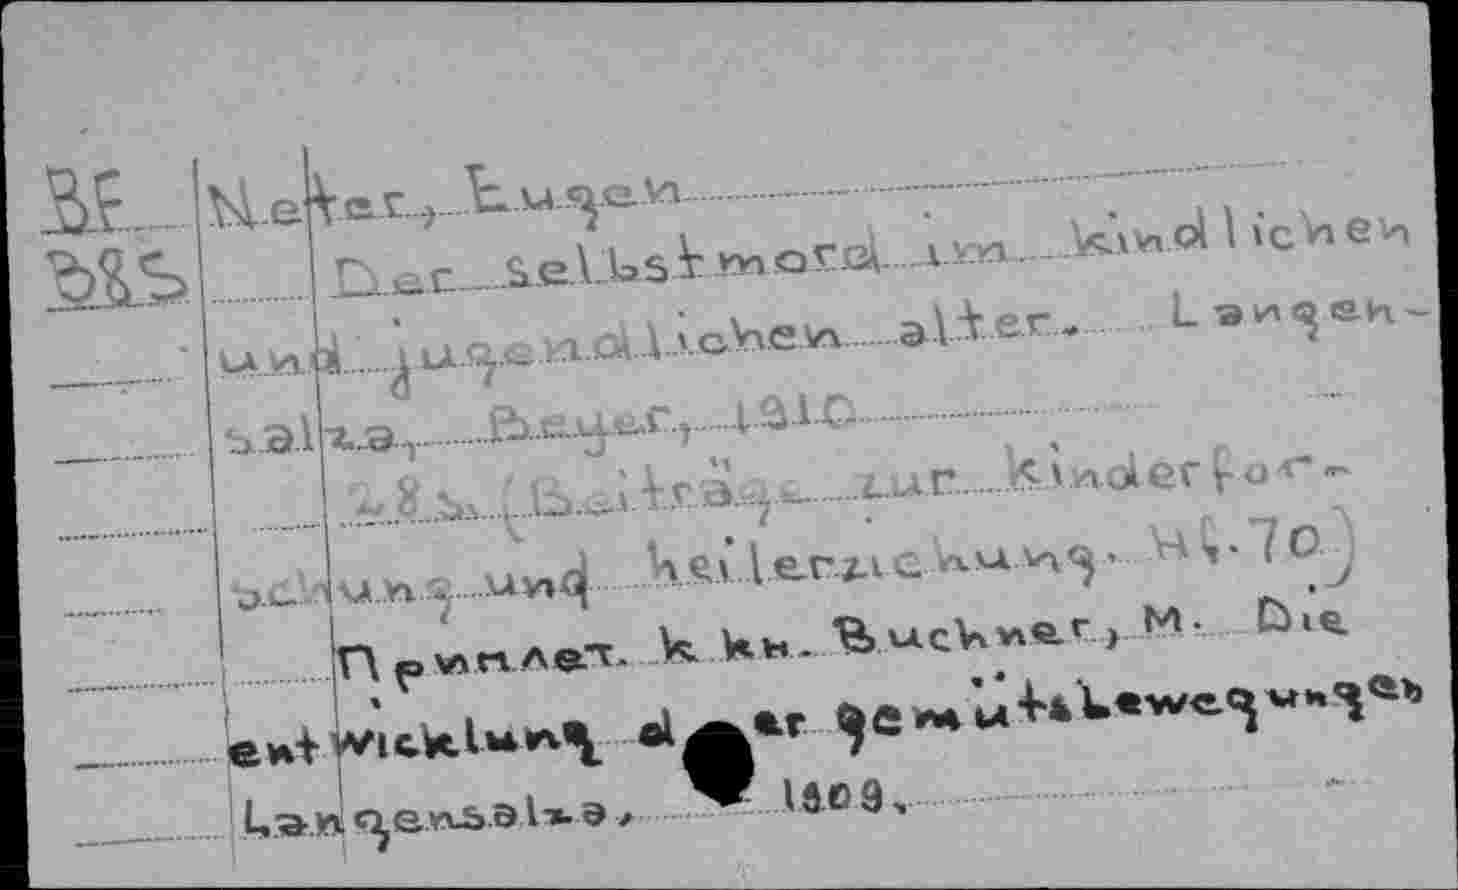 BF Neter, Eugen
B&S Der Selbstmord im kindlichen
und jugendlichen alter. Langen-
salza, Beyer, 1910
28 s. (Beiträge zur kinderfor-
schung und heilerziehung. Hf. 70)
Приплет. к кн. Buchner, M. Die
entwicklung der gemütsbewegungen
Langensalza, 1909.